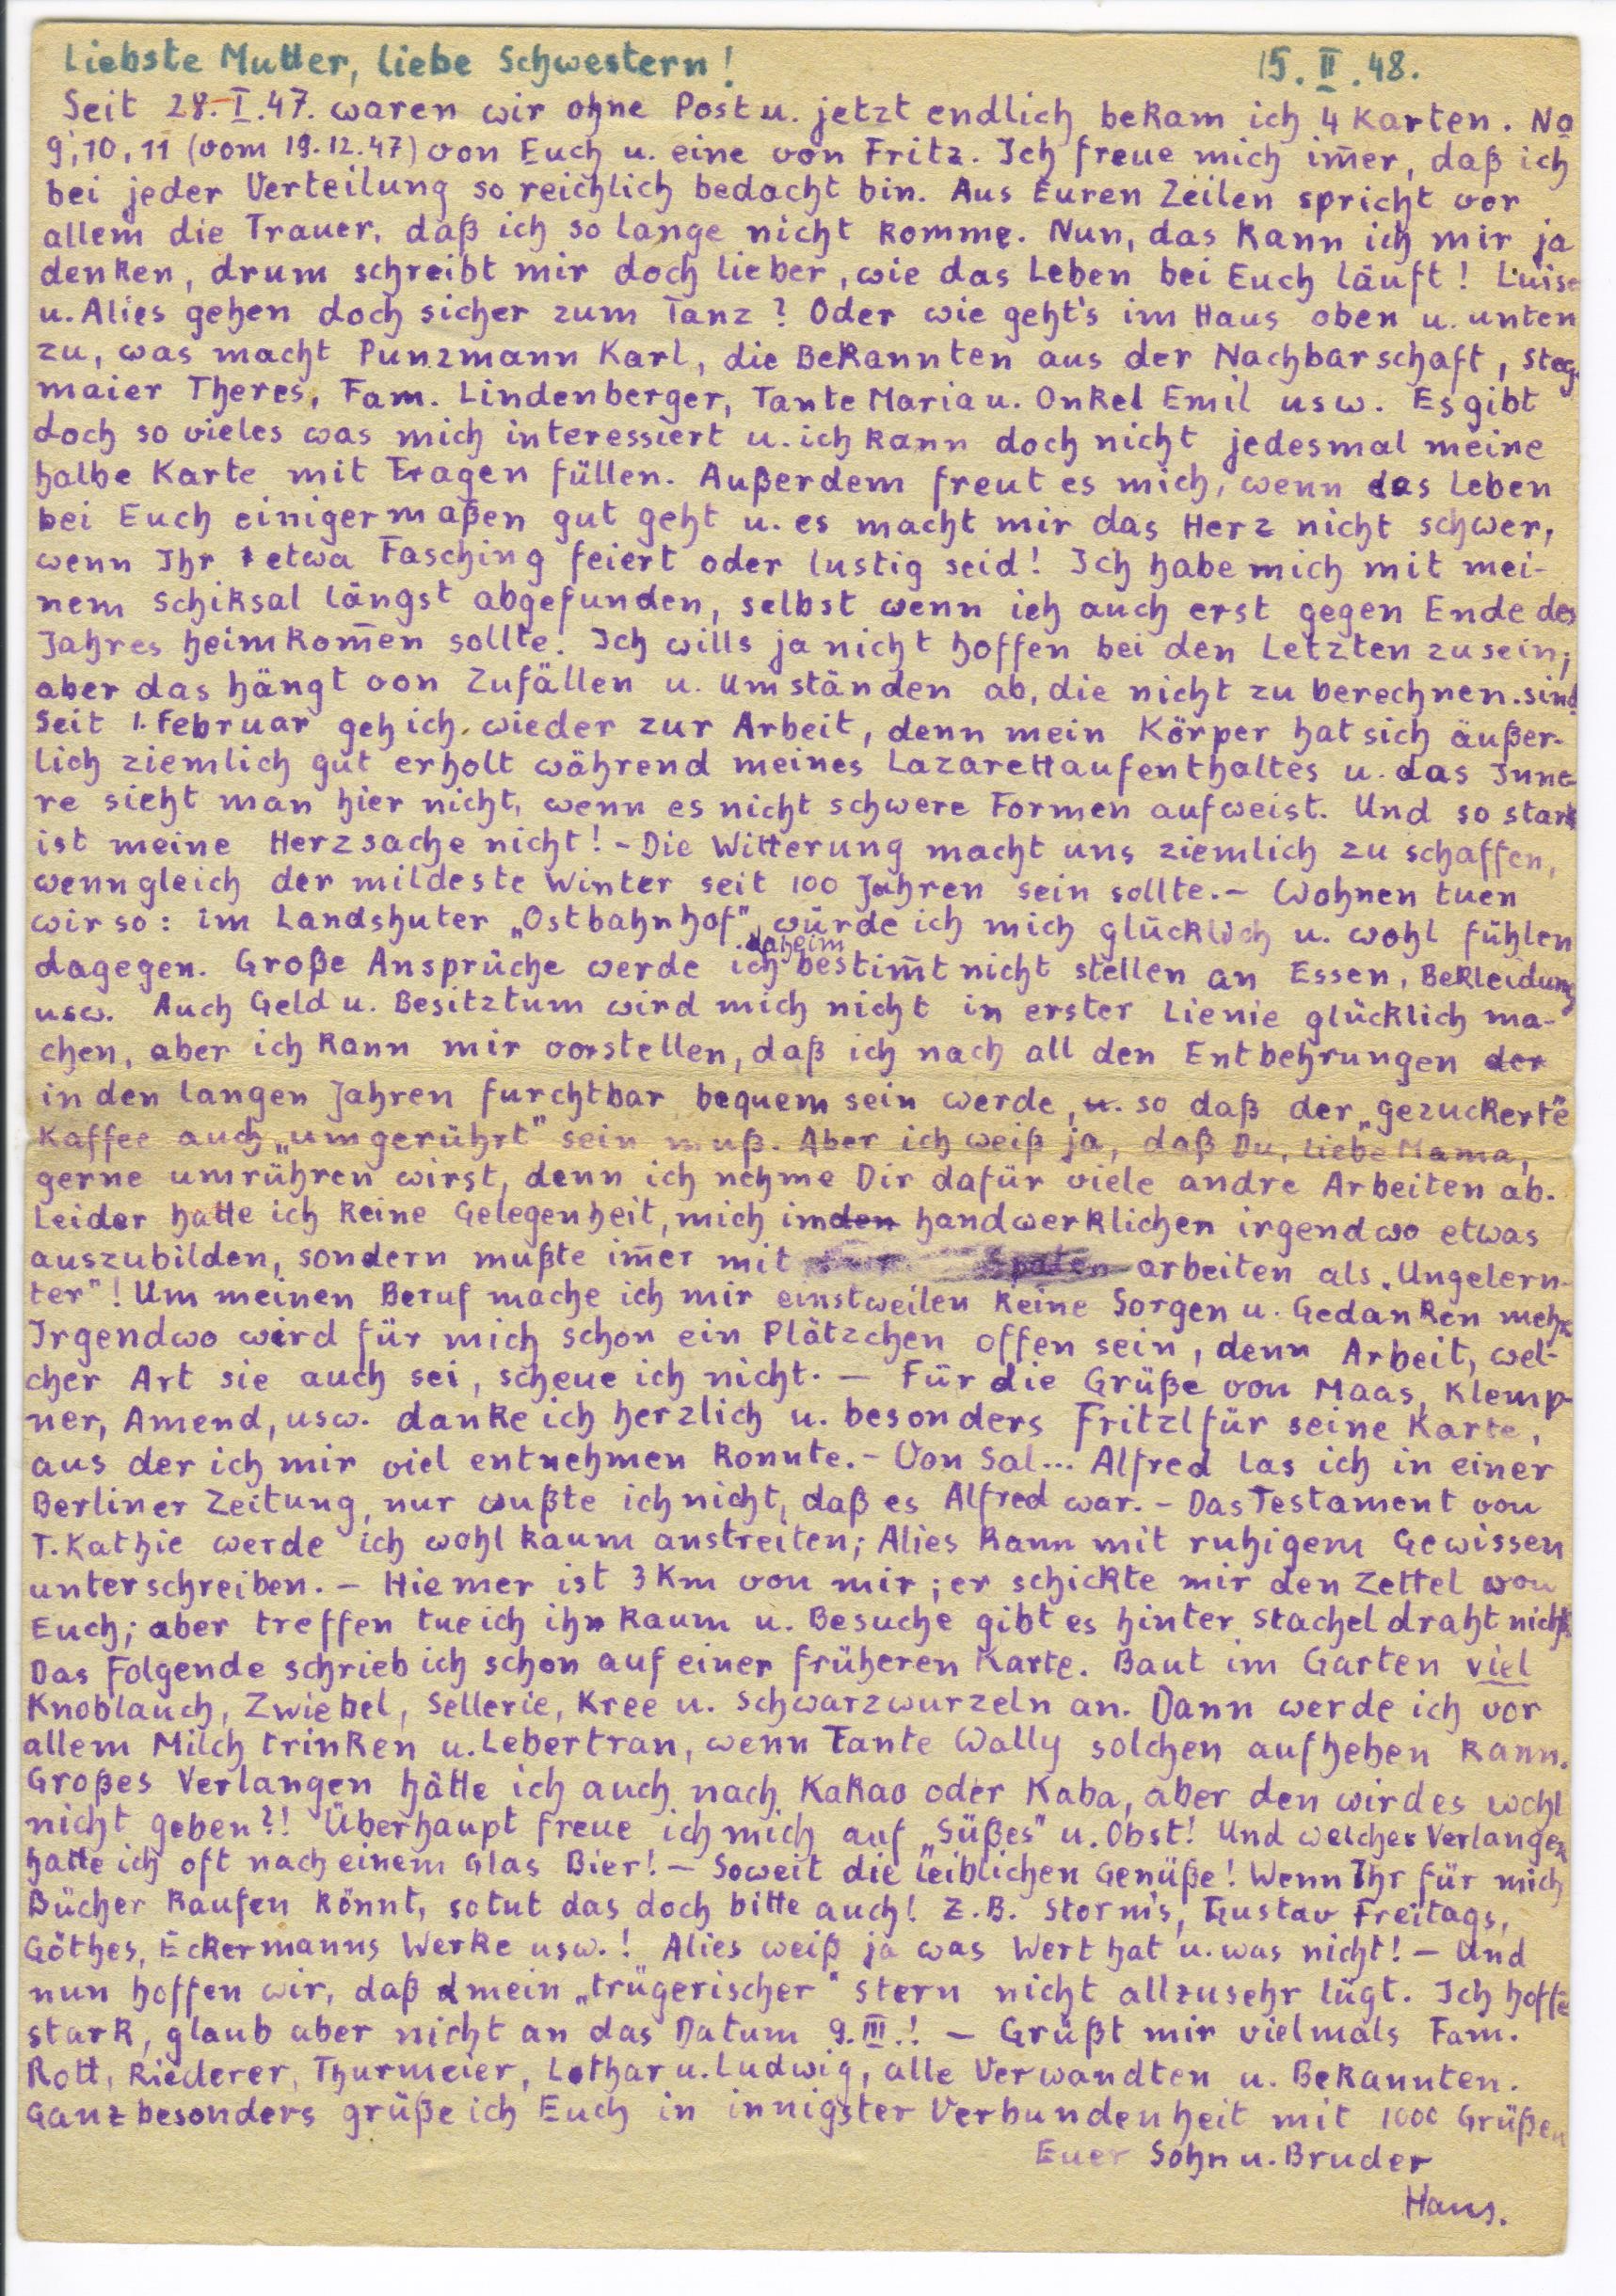 Liebste Mutter, liebe Schwestern! 15. II. 48.
Seit 28. I. 47. waren wir ohne Post u. jetzt endlich bekam ich 4 Karten. No
9, 10, 11 (vom 19.12.47) von Euch u. eine von Fritz. Ich freue mich im̄er, daß ich
bei jeder Verteilung so reichlich bedacht bin. Aus Euren Zeilen spricht vor
allem die Trauer, daß ich so lange nicht komme. Nun, das kann ich mir ja
denken, drum schreibt mir doch lieber, wie das Leben bei Euch läuft! Luise
u. Alies gehen doch sicher zum Tanz? Oder wie geht's im Haus oben u. unten
zu, was macht Punzmann Karl, die Bekannten aus der Nachbarschaft, Steg-
maier Theres, Fam. Lindenberger, Tante Maria u. Onkel Emil usw. Es gibt
doch so vieles was mich interessiert u. ich kann doch nicht jedesmal meine
halbe Karte mit Fragen füllen. Außerdem freut es mich, wenn das Leben
bei Euch einigermaßen gut geht u. es macht mir das Herz nicht schwer,
wenn Ihr etwa Fasching feiert oder lustig seid! Ich habe mich mit mei-
nem Schiksal längst abgefunden, selbst wenn ich auch erst gegen Ende des
Jahres heimkom̄en sollte. Ich wills ja nicht hoffen bei den Letzten zu sein;
aber das hängt von Zufällen u. Umständen ab, die nicht zu berechnen sind.
Seit 1. Februar geh ich wieder zur Arbeit, denn mein Körper hat sich äußer-
lich ziemlich gut erholt während meines Lazarettaufenthaltes u. das Inne-
re sieht man hier nicht, wenn es nicht schwere Formen aufweist. Und so stark
ist meine Herzsache nicht! - Die Witterung macht uns ziemlich zu schaffen,
wenngleich der mildeste Winter seit 100 Jahren sein sollte. - Wohnen tuen
wir so: im Landshuter „Ostbahnhof" würde ich mich glücklich u. wohl fühlen
dagegen. Große Ansprüche werde ich daheim bestim̄t nicht stellen an Essen, Bekleidung
usw. Auch Geld u. Besitztum wird mich nicht in erster Lienie glücklich ma-
chen, aber ich kann mir vorstellen, daß ich nach all den Entbehrungen der
in den langen Jahren furchtbar bequem sein werde, u. so daß der „gezuckerte"
Kaffee auch „umgerührt" sein muß. Aber ich weiß ja, daß Du, liebe Mama,
gerne umrühren wirst, denn ich nehme Dir dafür viele andre Arbeiten ab.
Leider hatte ich keine Gelegenheit, mich im den handwerklichen irgendwo etwas
auszubilden, sondern mußte im̄er mit Spaten arbeiten als „Ungelern-
ter"! Um meinen Beruf mache ich mir einstweilen keine Sorgen u. Gedanken mehr
Irgendwo wird für mich schon ein Plätzchen offen sein, denn Arbeit, wel-
cher Art sie auch sei, scheue ich nicht. - Für die Grüße von Maas, Klemp-
ner, Amend, usw. danke ich herzlich u. besonders Fritzl für seine Karte,
aus der ich mir viel entnehmen konnte. - Von Sal... Alfred las ich in einer
Berliner Zeitung, nur wußte ich nicht, daß es Alfred war. - Das Testament von
T. Kathie werde ich wohl kaum anstreiten; Alies kann mit ruhigem Gewissen
unterschreiben. - Hiemer ist 3 Km von mir; er schickte mir den Zettel von
Euch; aber treffen tue ich ihn kaum u. Besuche gibt es hinter Stacheldraht nicht.
Das Folgende schrieb ich schon auf einer früheren Karte. Baut im Garten viel
Knoblauch, Zwiebel, Sellerie, Kree u. Schwarzwurzeln an. Dann werde ich vor
allem Milch trinken u. Lebertran, wenn Tante Wally solchen aufheben kann.
Großes Verlangen hätte ich auch nach Kakao oder Kaba, aber den wird es wohl
nicht geben?! Überhaupt freue ich mich auf „Süßes" u. Obst! Und welches Verlangen
hatte ich oft nach einem Glas Bier! - Soweit die leiblichen Genüße! Wenn Ihr für mich
Bücher kaufen könnt, so tut das doch bitte auch! Z.B. Storm's, Gustav Freitags,
Göthes, Eckermanns Werke usw.! Alies weiß ja was Wert hat u. was nicht! - Und
nun hoffen wir, daß mein „trügerischer" Stern nicht allzusehr lügt. Ich hoffe
stark, glaub aber nicht an das Datum 9. III.! - Grüßt mir vielmals Fam.
Rott, Riederer, Thurmeier, Lothar u. Ludwig, alle Verwandten u. Bekannten.
Ganz besonders grüße ich Euch in innigster Verbundenheit mit 1000 Grüßen
Euer Sohn u. Bruder
Hans.